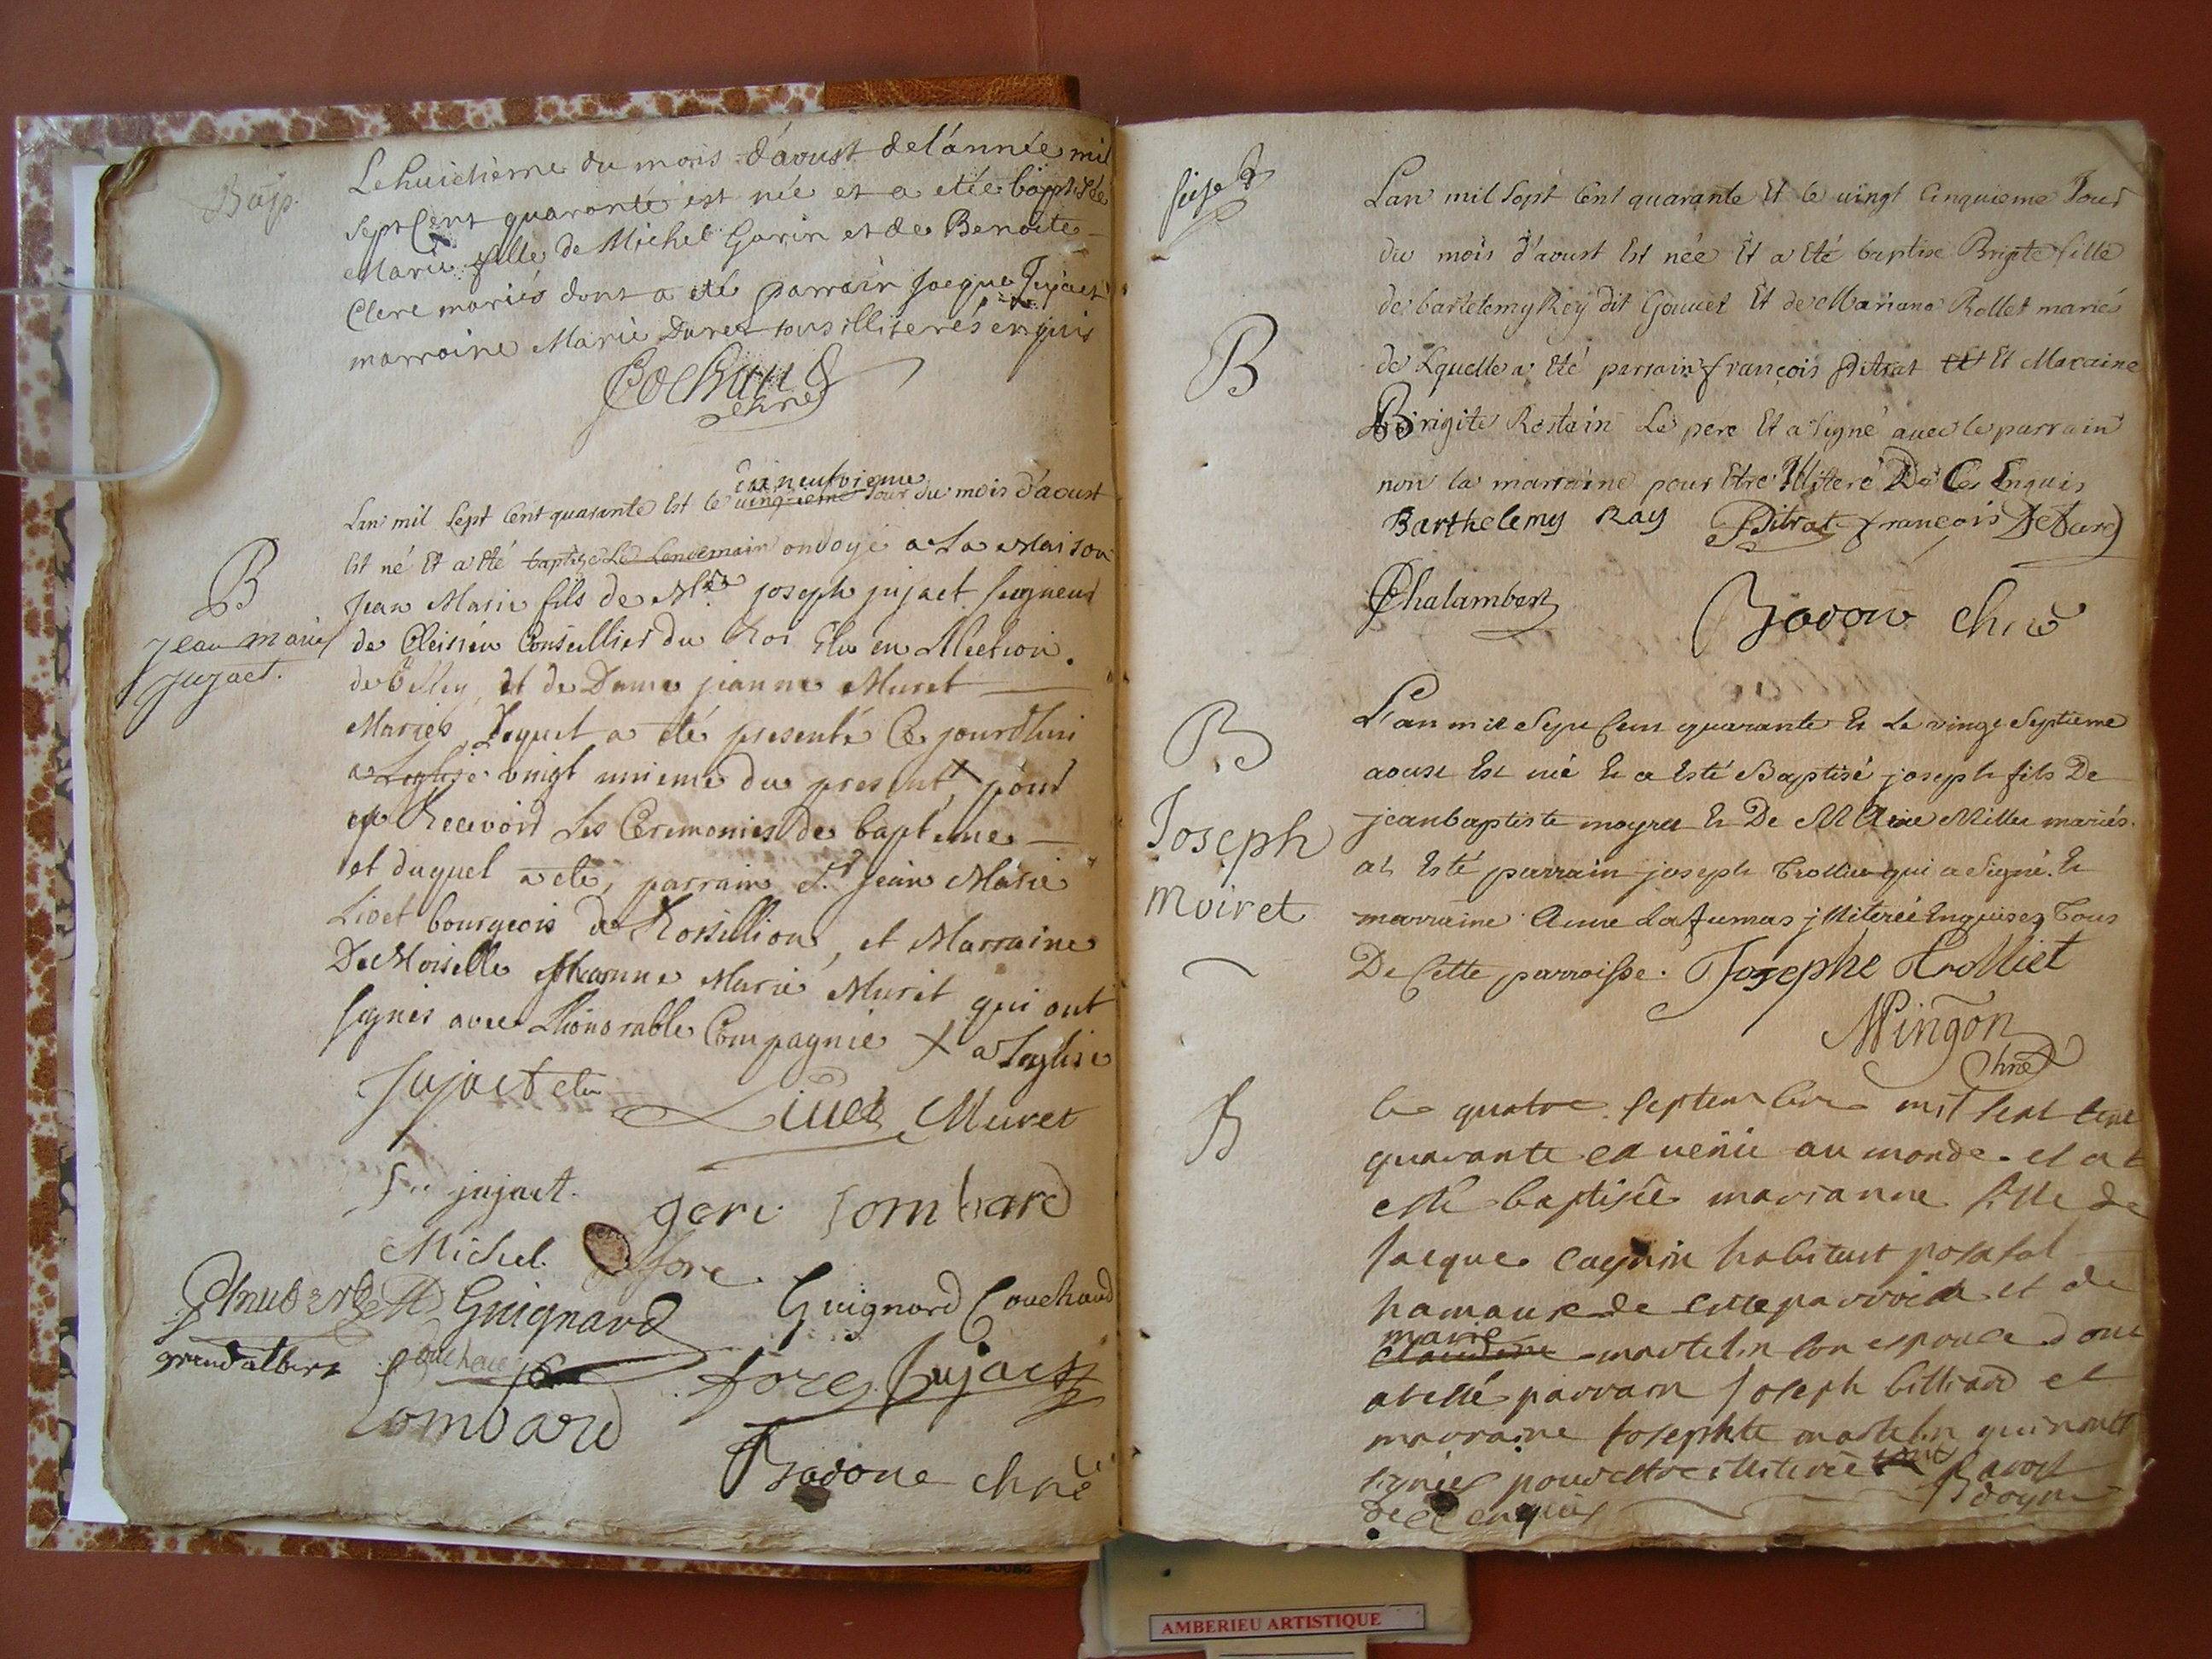 Bap.
Le huictieme du mois d'aoust de l'année mil
sept Cent quarante est née et a etée baptisée
Marie fille de Michel Garin et de Benoite
Clere mariés dont a eté parrain Jacque Jujact
marraine Marie Duret tous illiterés enquis
Cochand
chne
dix neufvieme
Lan mil sept Cent quarante Est le vingtieme Jour du mois d'aoust
Est né Et a Eté baptize Le Lendemain ondoyé a La Maison
B
Jean Marie fils de Mre joseph jujact seigneur
jean marie
jujact.
de Cleisieu Conseillier du Roi Elu en Election
de Belley, et de Dame jeanne Muret
Mariés, Lequel a eté presenté Ce jourdhui
a Leglise vingt unieme du present, X pour
Recevoir Les Ceremonies de bapteme
et duquel a eté, parrain Sr jean Marie
Livet bourgeois de Rossillion, et Marraine
DeMoiselle Jeanne Marie Muret qui ont
signés avec Lhonorable Compagnie X a Leglise
Jujact elu
Livet Muret
jujact.
geri Lombard
Michel fore
Guignard Couchoud
Guignard
grendalbert
fore Jujact
Lombard
Badone chne
Lan mil Sept Cent quarante Et le vingt Cinquieme Jour
du mois d'aoust Est née Et a Eté baptise Brigte fille
de bartelemy Rey dit Gouvet Et de Mariane Rollet mariés
B
de Lquelle a Eté parrain françois Pitrat Et Et Maraine
Birigite Rostain Le pere Et a signé avec le parrain
non la marraine pour Etre Illiteré De Ce Enquis
Barthelemy Ray Pitrat françois
Chalambert
Badone Chne
B
L'an mil Sept Cent quarante Et Le vingt Septieme
aoust Est né Et a Esté Baptisé joseph fils De
Joseph
moiret
jeanbaptiste moyret Et De Marie Millet mariés.
at Esté parrain joseph Trolliet qui a Signé. Et
marraine Anne Lafumas jlliterée Enquises Tous
De Cette parroisse. Josephe Trolliet
Mingon
chne
B
le quatre septembre mil sept cent
quarante est venue au monde et at
esté baptisée marianne fille de
Jacque habitant
hamaux de cette parroisse et de
marie
claudine martelin son espouce dont
at esté parrain Joseph billiard et
marraine Josephte martelin qui n'ont
signées pour estre illiterée
de ce enquis
AMBERIEU ARTISTIQUE